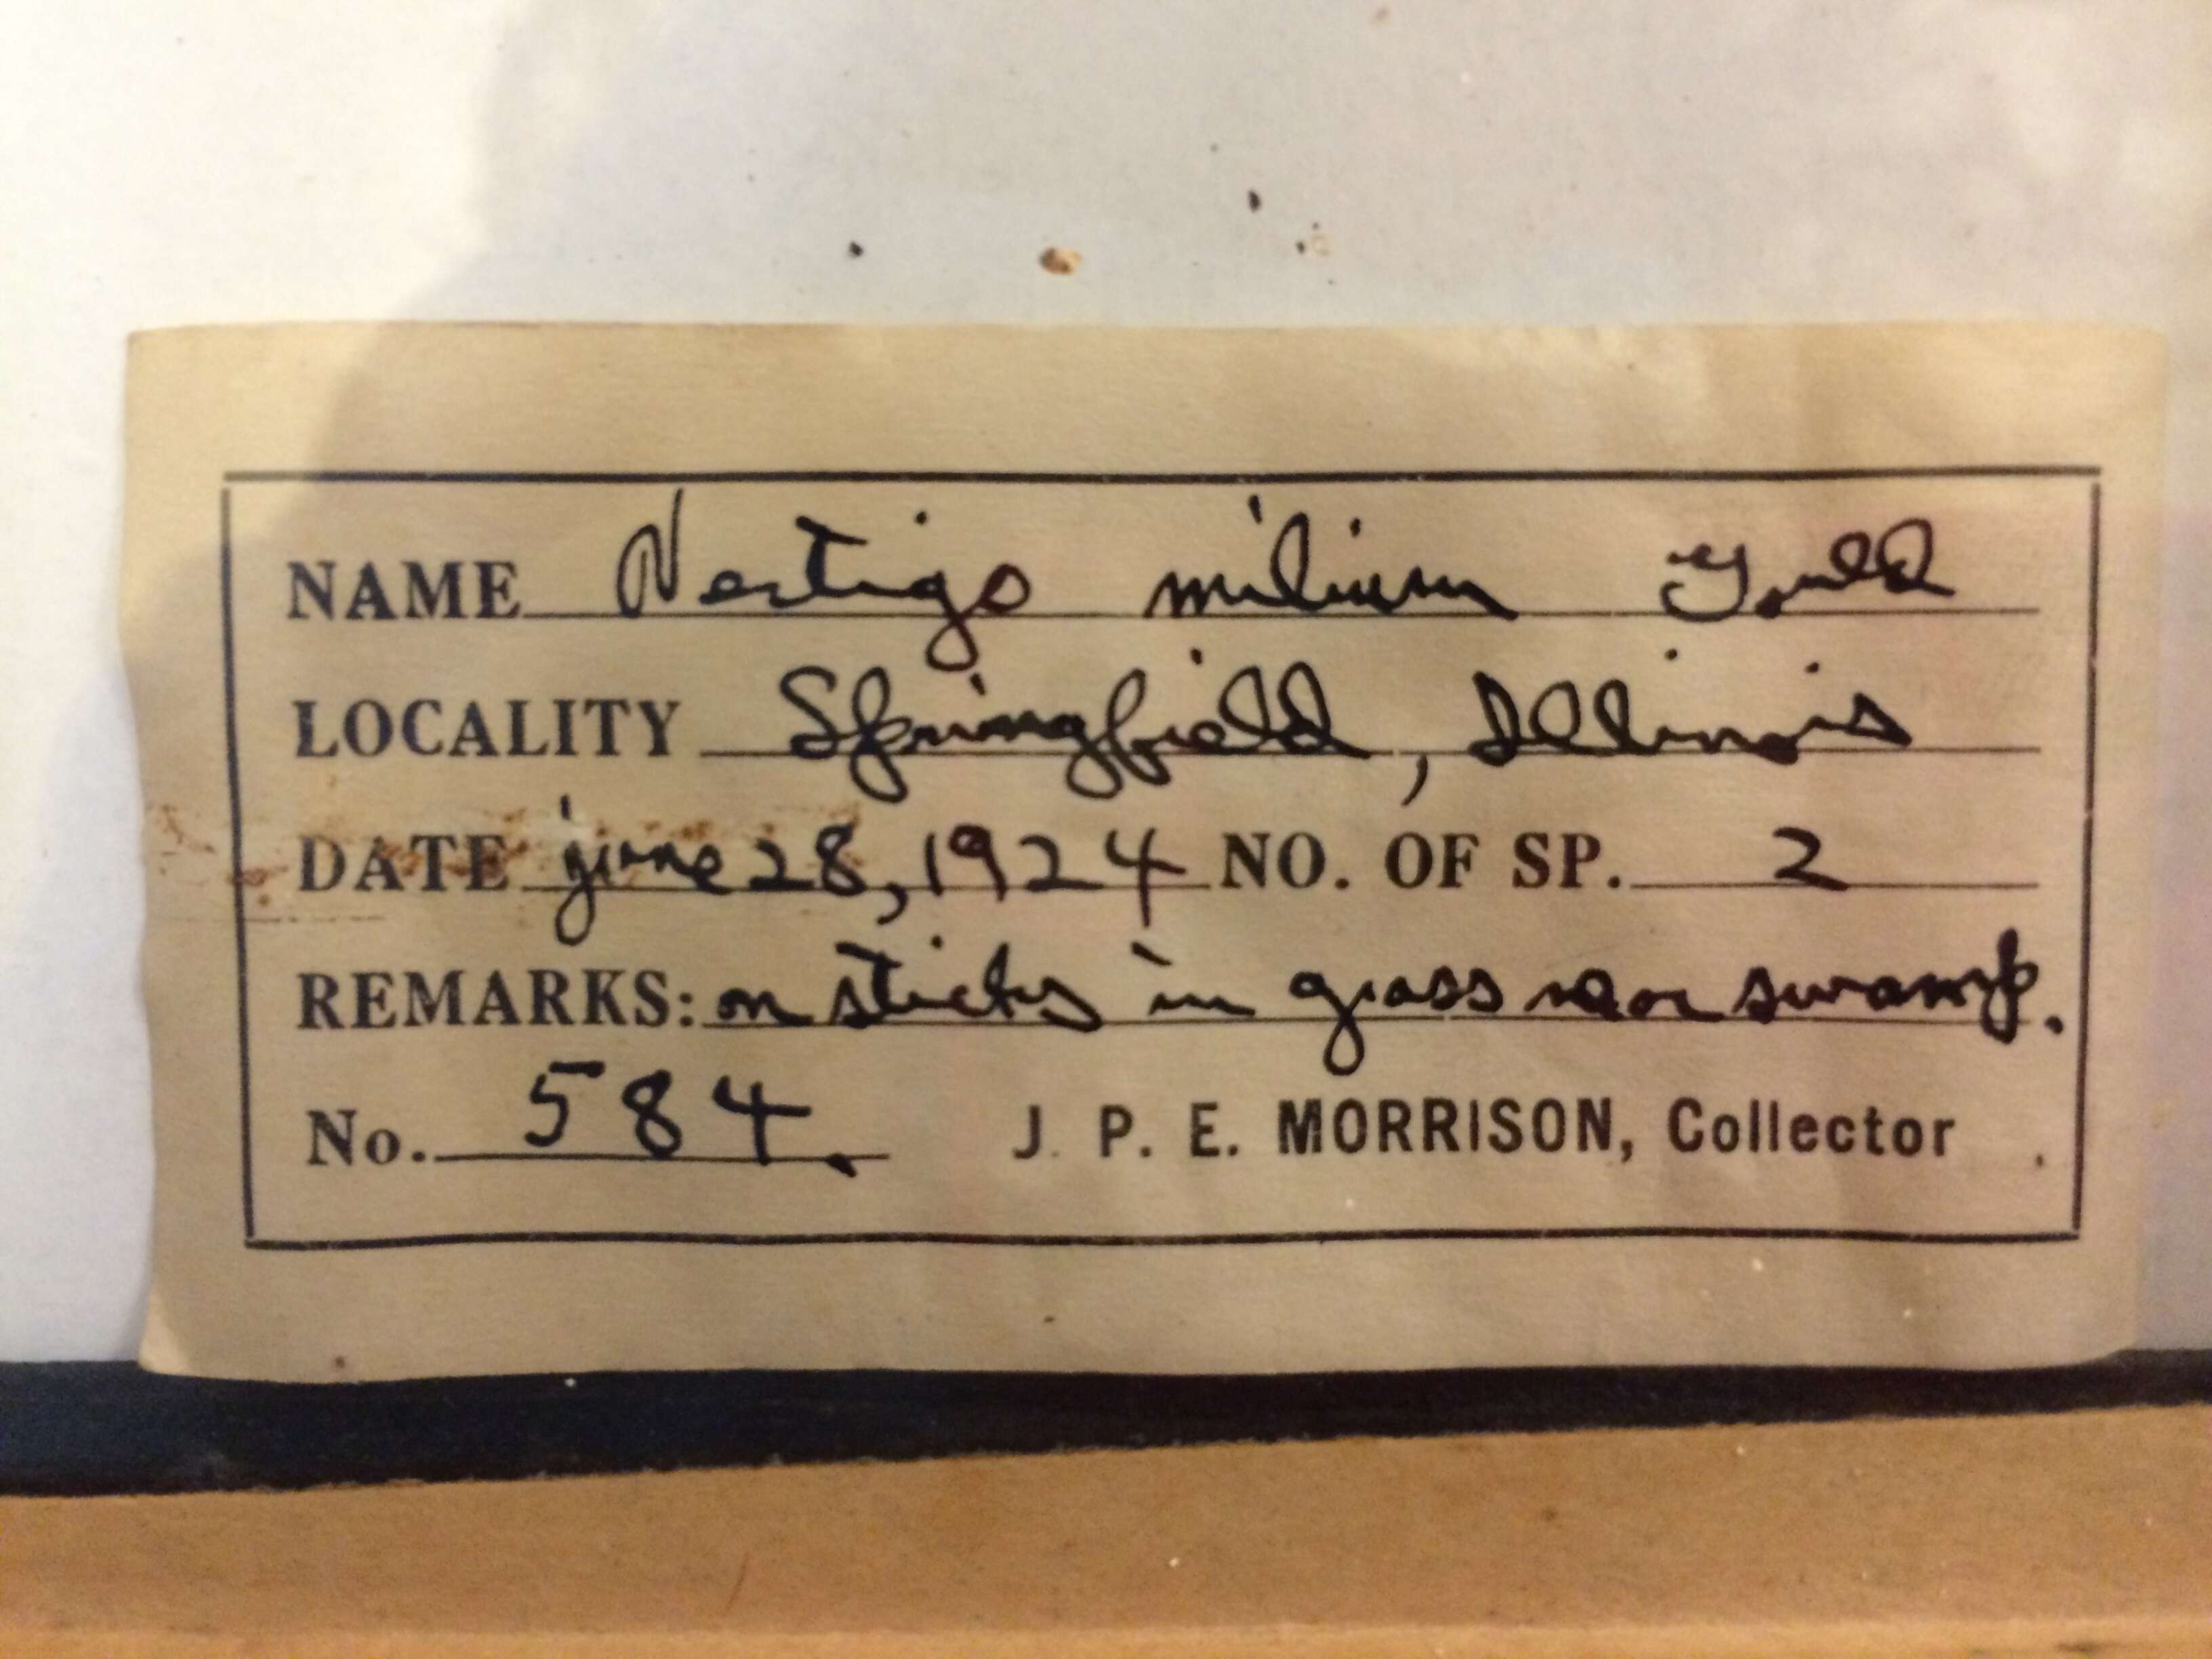 NAME Vertigo milium Gould
LOCALITY Springfield, Illinois
DATE june 28, 1924 NO. OF SP. 2
REMARKS: on sticks in grass near swamp.
No. 584. J. P. E. MORRISON, Collector